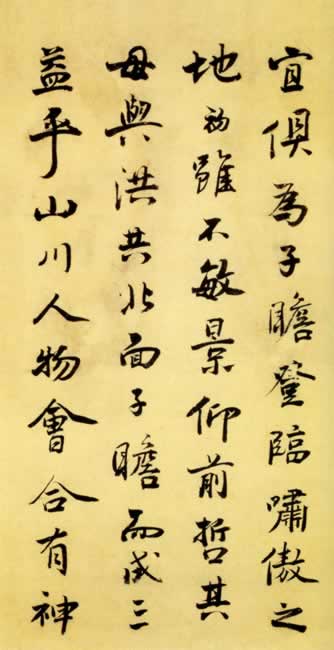 宜俱為子瞻登臨嘯傲之
地雖不敏景仰前哲其
母與洪共北面子瞻而成三
益乎山川人物會合有神